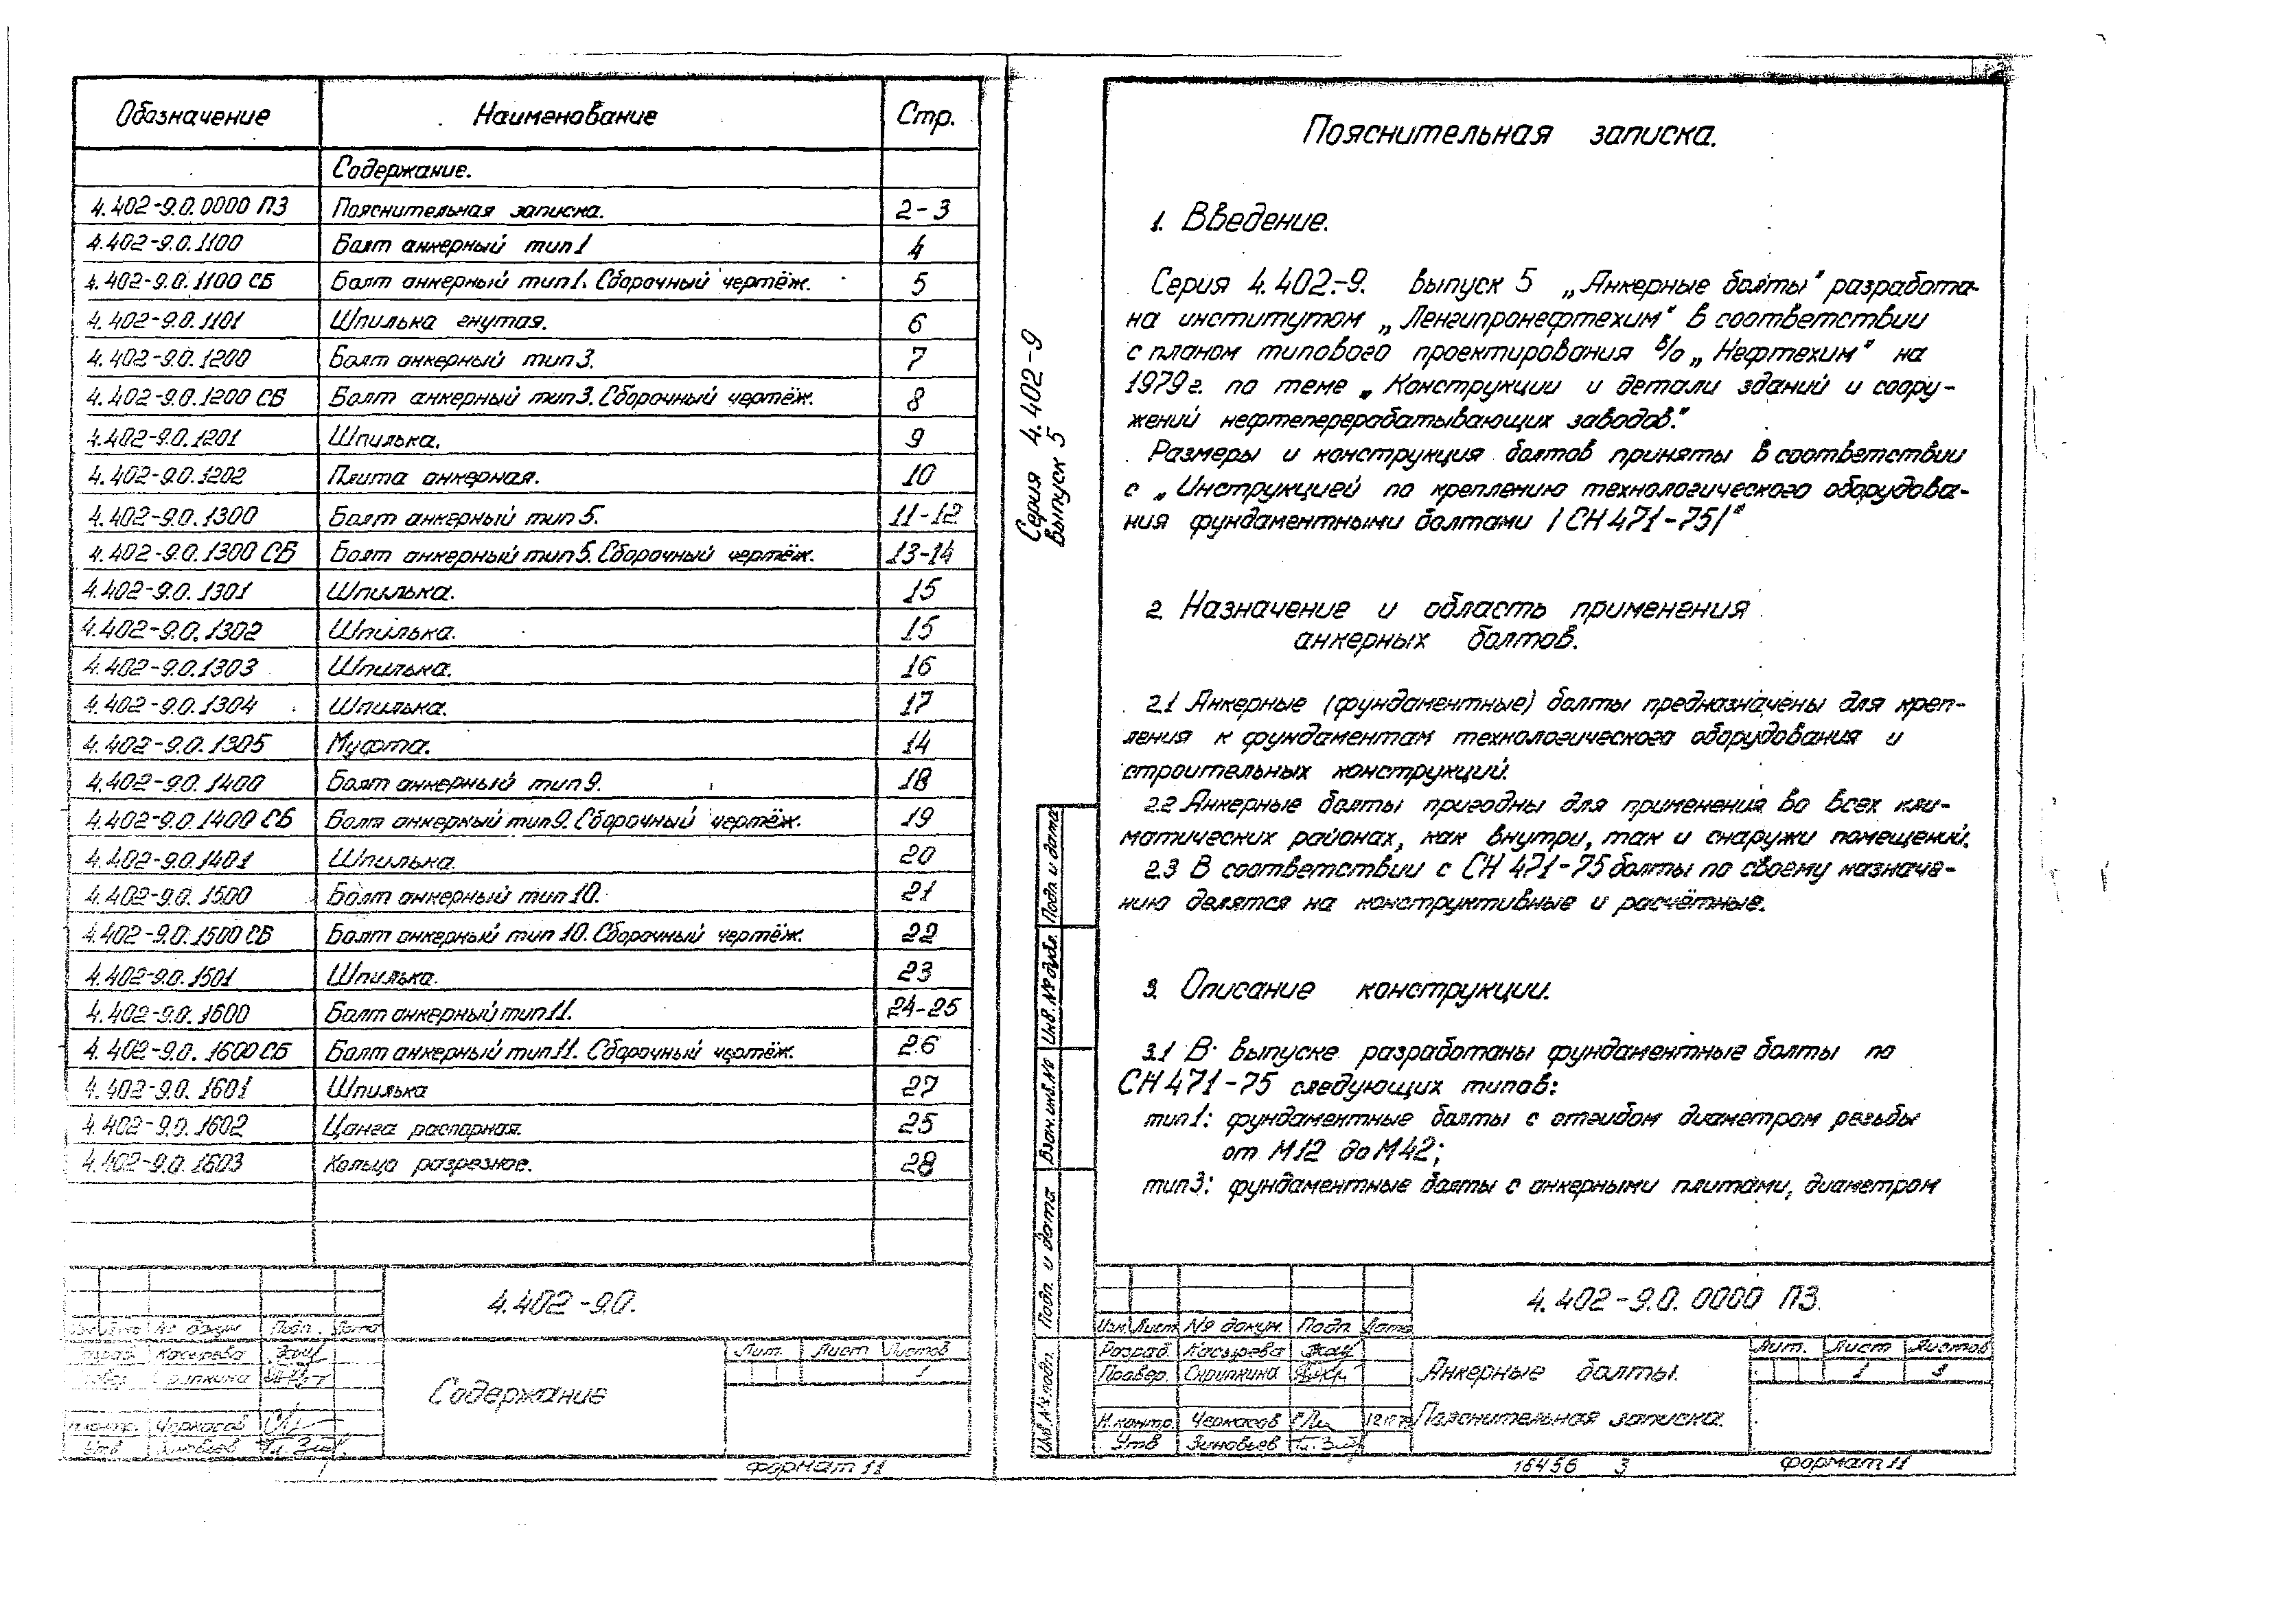 Обозначение Наименование Стр.
Содержание.
4.402-9.0.0000 ПЗ Пояснительная записка. 2-3
4.402-9.0.1100 Болт анкерный тип 1 4
4.402-9.0.1100 СБ Болт анкерный тип 1. Сборочный чертёж. 5
4.402-9.0.1101 Шпилька гнутая. 6
4.402-9.0.1200 Болт анкерный тип 3. 7
4.402-9.0.1200 СБ Болт анкерный тип 3. Сборочный чертёж. 8
4.402-9.0.1201 Шпилька. 9
4.402-9.0.1202 Плита анкерная. 10
4.402-9.0.1300 Болт анкерный тип 5. 11-12
4.402-9.0.1300 СБ Болт анкерный тип 5. Сборочный чертёж. 13-14
4.402-9.0.1301 Шпилька. 15
4.402-9.0.1302 Шпилька. 15
4.402-9.0.1303 Шпилька. 16
4.402-9.0.1304 Шпилька. 17
4.402-9.0.1305 Муфта. 14
4.402-9.0.1400 Болт анкерный тип 9. 18
4.402-9.0.1400 СБ Болт анкерный тип 9. Сборочный чертёж. 19
4.402-9.0.1401 Шпилька. 20
4.402-9.0.1500 Болт анкерный тип 10. 21
4.402-9.0.1500 СБ Болт анкерный тип 10. Сборочный чертёж. 22
4.402-9.0.1501 Шпилька. 23
4.402-9.0.1600 Болт анкерный тип 11. 24-25
4.402-9.0.1600 СБ Болт анкерный тип 11. Сборочный чертёж. 26
4.402-9.0.1601 Шпилька 27
4.402-9.0.1602 Цанга распорная. 25
4.402-9.0.1603 Кольцо разрезное. 28
4.402-9.0.
№ докум. Подп. Дата
Разраб. Касырева
Скрипкина
Н.контр. Черкасов
Утв Зиновьев
Содержание
Лит. Лист Листов
1
Формат 11
Серия 4.402-9
Выпуск 5
Подп. и дата
Инв. № дубл.
Взам. инв. №
Подп. и дата
Инв. № подл.
Пояснительная записка.
1. Введение.
Серия 4.402-9. выпуск 5 „Анкерные болты" разработа-
на институтом „Ленгипронефтехим" в соответствии
с планом типового проектирования в/о „Нефтехим" на
1979г. по теме „Конструкции и детали зданий и соору-
жений нефтеперерабатывающих заводов."
Размеры и конструкция болтов приняты в соответствии
с „Инструкцией по креплению технологического оборудова-
ния фундаментными болтами /СН 471-75/"
2. Назначение и область применения
анкерных болтов.
2.1 Анкерные (фундаментные) болты предназначены для креп-
ления к фундаментам технологического оборудования и
строительных конструкций.
2.2 Анкерные болты пригодны для применения во всех кли-
матических районах, как внутри, так и снаружи помещений.
2.3 В соответствии с СН 471-75 болты по своему назначе-
нию делятся на конструктивные и расчётные.
3. Описание конструкции.
3.1 В выпуске разработаны фундаментные болты по
СН 471-75 следующих типов:
тип 1: фундаментные болты с отгибом диаметром резьбы
от М12 до М42;
тип 3: фундаментные болты с анкерными плитами, диаметром
4.402-9.0.0000 ПЗ.
Изм. Лист № докум. Подп. Дата
Разраб. Касырева
Провер. Скрипкина
Н.контр. Черкасов
Утв Зиновьев
Анкерные болты.
Пояснительная записка.
Лит. Лист Листов
1 3
16456 3 Формат 11